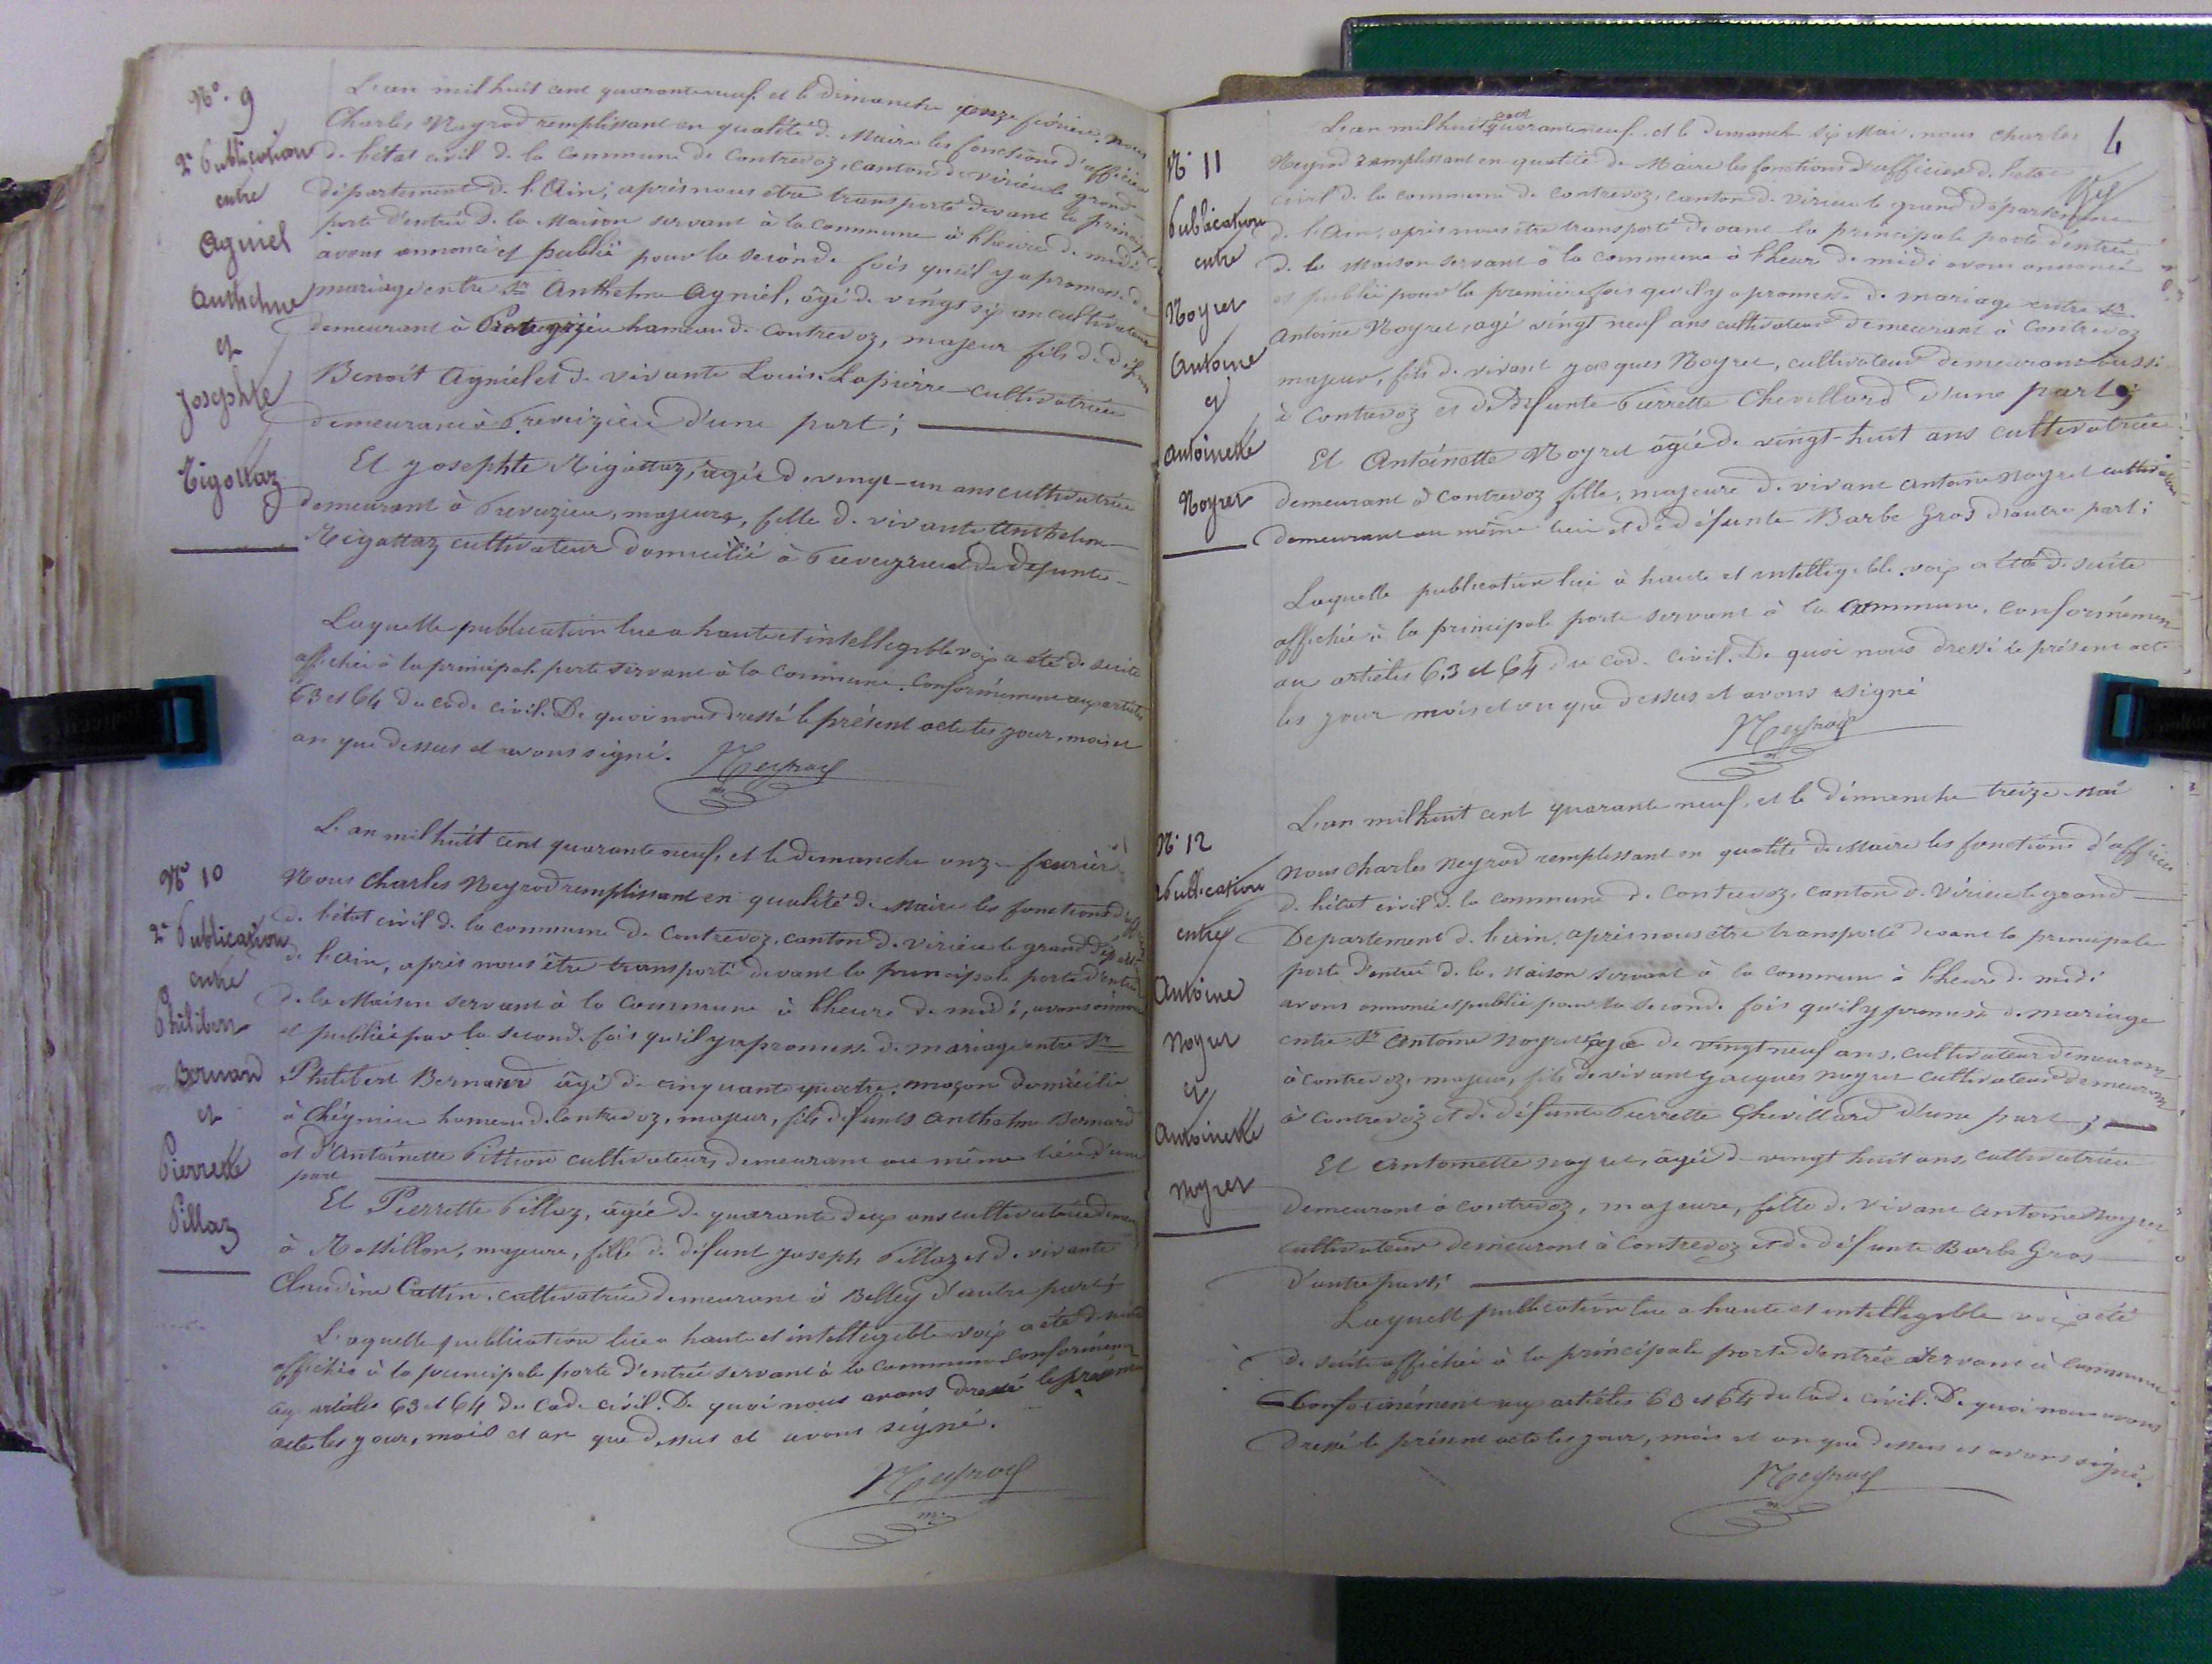 N° 9
2e Publication
entre
Agniel
Anthelme
et
Josephte
Rigottaz
L'an mil huit cent quarante neuf et le dimanche onze février, nous
Charles Neyrod remplissant en qualité de Maire les fonctions d'officier
de l'état civil de la commune de Contrevoz, canton de Virieu le grand
département de l'Ain; après nous être transporté devant la principale
porte d'entrée de la Maison servant à la commune à l'heure de midi
avons annoncé et publié pour la seconde fois qu'il y a promesse de
mariage entre Sr Anthelme Agniel, âgé de vingt six an cultivateur
demeurant à hameau de Contrevoz, majeur fils de défunt
Benoit Agniel et de vivante Louise Lapierre cultivatrice
demeurant à Preveizieu d'une part;
Et Josephte Rigottaz, âgée de vingt-un ans cultivatrice
demeurant à Preveizieu, majeure, fille de vivante Anthelme
Rigottaz cultivateur domicilié à Preveizieu et de défunte
Laquelle publication lue a haute et intellegible voix a été de suite
affichée à la principale porte servant à la commune. Conformément aux articles
63 et 64 du code civil. De quoi nous dressé le présent acte les jour, mois et
an que dessus et avons signé.
Neyrod
N° 10
2e Publication
entre
Philibert
Bernard
et
Pierrette
Pillaz
L'an mil huit cent quarante neuf, et le dimanche onze fevrier
Nous Charles Neyrod remplissant en qualité de Maire les fonctions d'officier
de l'état civil de la commune de Contrevoz, canton de Virieu le grand dépt
de l'Ain, après nous être transporté devant la principale porte d'entrée
de la Maison servant à la commune à l'heure de midi, avons annoncé
et publié par la seconde fois qu'il y a promesse de mariage entre Sr
Philibert Bernard âgé de cinquante quatre, maçon domicilié
à Chégnieu hameau de Contrevoz, majeur, fils défunts Anthelme Bernard
et d'Antoinette Pittion cultivateurs demeurant au même lieu d'une
part
Et Pierrette Pillaz, âgée de quarante deux ans cultivatrice demeurant
à Rossillon, majeure, fille de défunt Joseph Pillaz et de vivante
Claudine Cattin, cultivatrice demeurant à Belley d'autre part;
Laquelle publication lue a haute et intellegible voix a été de suite
affichée à la principale porte d'entrée servant à la commune conformément
aux articles 63 et 64 du Code civil. De quoi nous avons dressé le présent
acte les jour, mois et an que dessus et avons signé.
Neyrod
4
N° 11
Publication
entre
Noyret
Antoine
et
Antoinette
Noyret
L'an mil huit cent quarante neuf, et le dimanche six Mai, nous Charles
Neyrod remplissant en qualité de Maire les fonctions d'officier de l'état
civil de la commune de Contrevoz, canton de Virieu le grand département
de l'Ain, après nous être transporté devant la principale porte d'entrée
de la Maison servant à la commune à l'heure de midi avons annoncé
et publié pour la première fois qu'il y a promesse de mariage entre Sr
Antoine Noyret, agé vingt neuf ans cultivateur demeurant à Contrevoz
majeur, fils de vivant Jacques Noyret, cultivateur demeurant aussi
à Contrevoz et de défunte Pierrette Chevillard d'une part;
Et Antoinette Noyret âgée de vingt-huit ans cultivatrice
demeurant à Contrevoz fille, majeure de vivant Antoine Noyret cultivateur
demeurant au même lieu et de défunte Barbe Gros d'autre part;
Laquelle publication lue à haute et intellegible voix a été de suite
affichée à la principale porte servant à la commune, conformément
au articles 63 et 64 du Code civil. De quoi nous dressé le présent acte
les jour mois et an que dessus et avons signé
Neyrod
N° 12
Publication
entre
Antoine
Noyret
et
Antoinette
Noyret
L'an mil huit cent quarante neuf, et le dimanche treize Mai
nous Charles Neyrod remplissant en qualité de Maire les fonctions d'officier
de l'état civil de la commune de Contrevoz, canton de Virieu le grand
Departement de l'ain, après nous être transporté devant la principale
porte d'entrée de la Maison servant à la commune à l'heure de midi
avons annoncé et publié pour la seconde fois qu'il y promesse de mariage
entre Sr Antoine Noyret âgé de vingt neuf ans, cultivateur demeurant
à Contrevoz, majeur, fils de vivant Jacques Noyret cultivateur demeurant
à Contrevoz et de défunte Pierrette Chevillard d'une part;
Et Antoinette Noyret, âgée de vingt huit ans, cultivatrice
demeurant à Contrevoz, majeure, fille de vivant Antoine Noyret
cultivateur demeurant à Contrevoz et de défunte Barbe Gros
d'autre part;
Laquelle publication lue a haute et intellegible voix a été
de suite affichée à la principale porte d'entrée servant à commune
Conformément aux articles 63 et 64 du Code civil. De quoi nous avons
dressé le présent acte les jour, mois et an que dessus et avons signé.
Neyrod